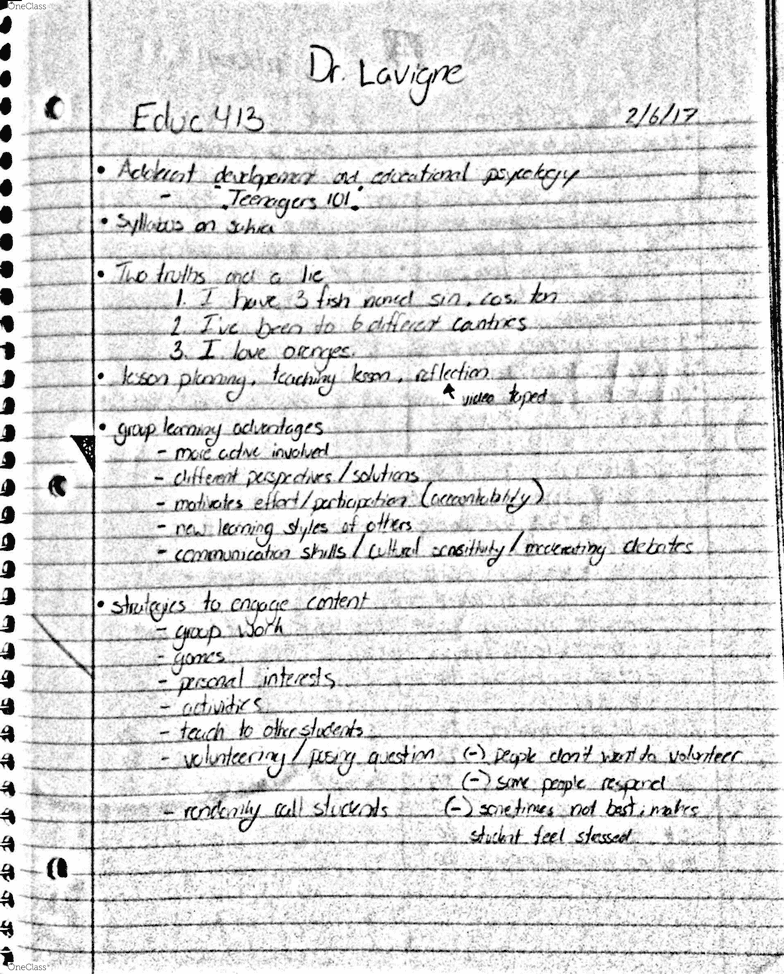 OneClass
Dr. Lavigne
Educ 413 2/6/17
• Adolescent development and educational psycology
- "Teenagers 101"
• Syllabus on sakai
• Two truths and a lie
1. I have 3 fish named sin, cos, tan
2. I've been to 6 different contries
3. I love oranges.
• lesson planning, teaching lesson, reflection
video taped
• group learning advantages
- more active involved
- different perspectives/solutions
- motivates effort/participation (accountability)
- new learning styles of others
- communication skills/cultural sensitivity/moderating debates
• strategies to engage content
- group work
- games
- personal interests
- activities
- teach to other students
- volunteering/posing question (-) people don't want to volunteer
(-) same people respond
- randomly call students (-) sometimes not best, makes
student feel stressed
OneClass